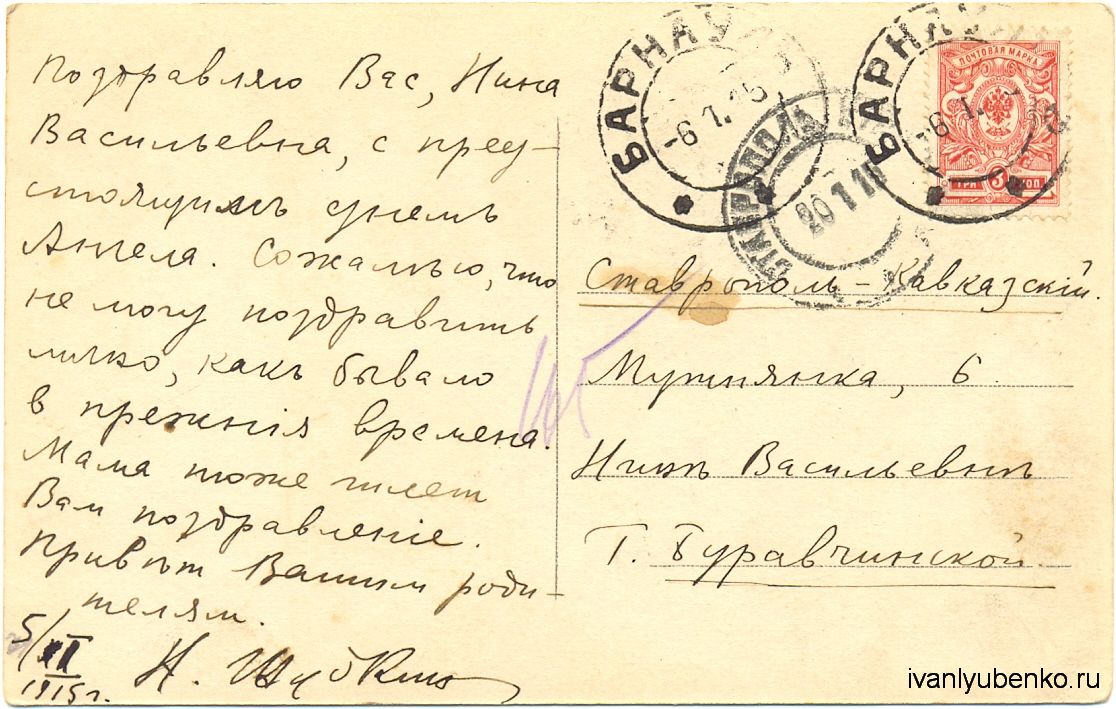 Поздравляю Вас, Нина
Васильевна, с пред-
стоящимъ днемъ
Ангела. Сожалѣю, что
не могу поздравить
лично, какъ бывало
в прежнія времена.
Мама тоже шлет
Вам поздравленіе.
Привѣт Вашим роди-
телям.
5/
1915 г.
Н.
БАРНАУЛЪ
-6.1.15
БАРНАУЛ
-6.1.
СТАВРОПОЛЬ
20 1 1
ПОЧТОВАЯ МАРКА
ТРИ 3 КОП.
Ставрополь-Кавказскій.
6.
Нинѣ Васильевнѣ
Г. Буравчинской.
ivanlyubenko.ru